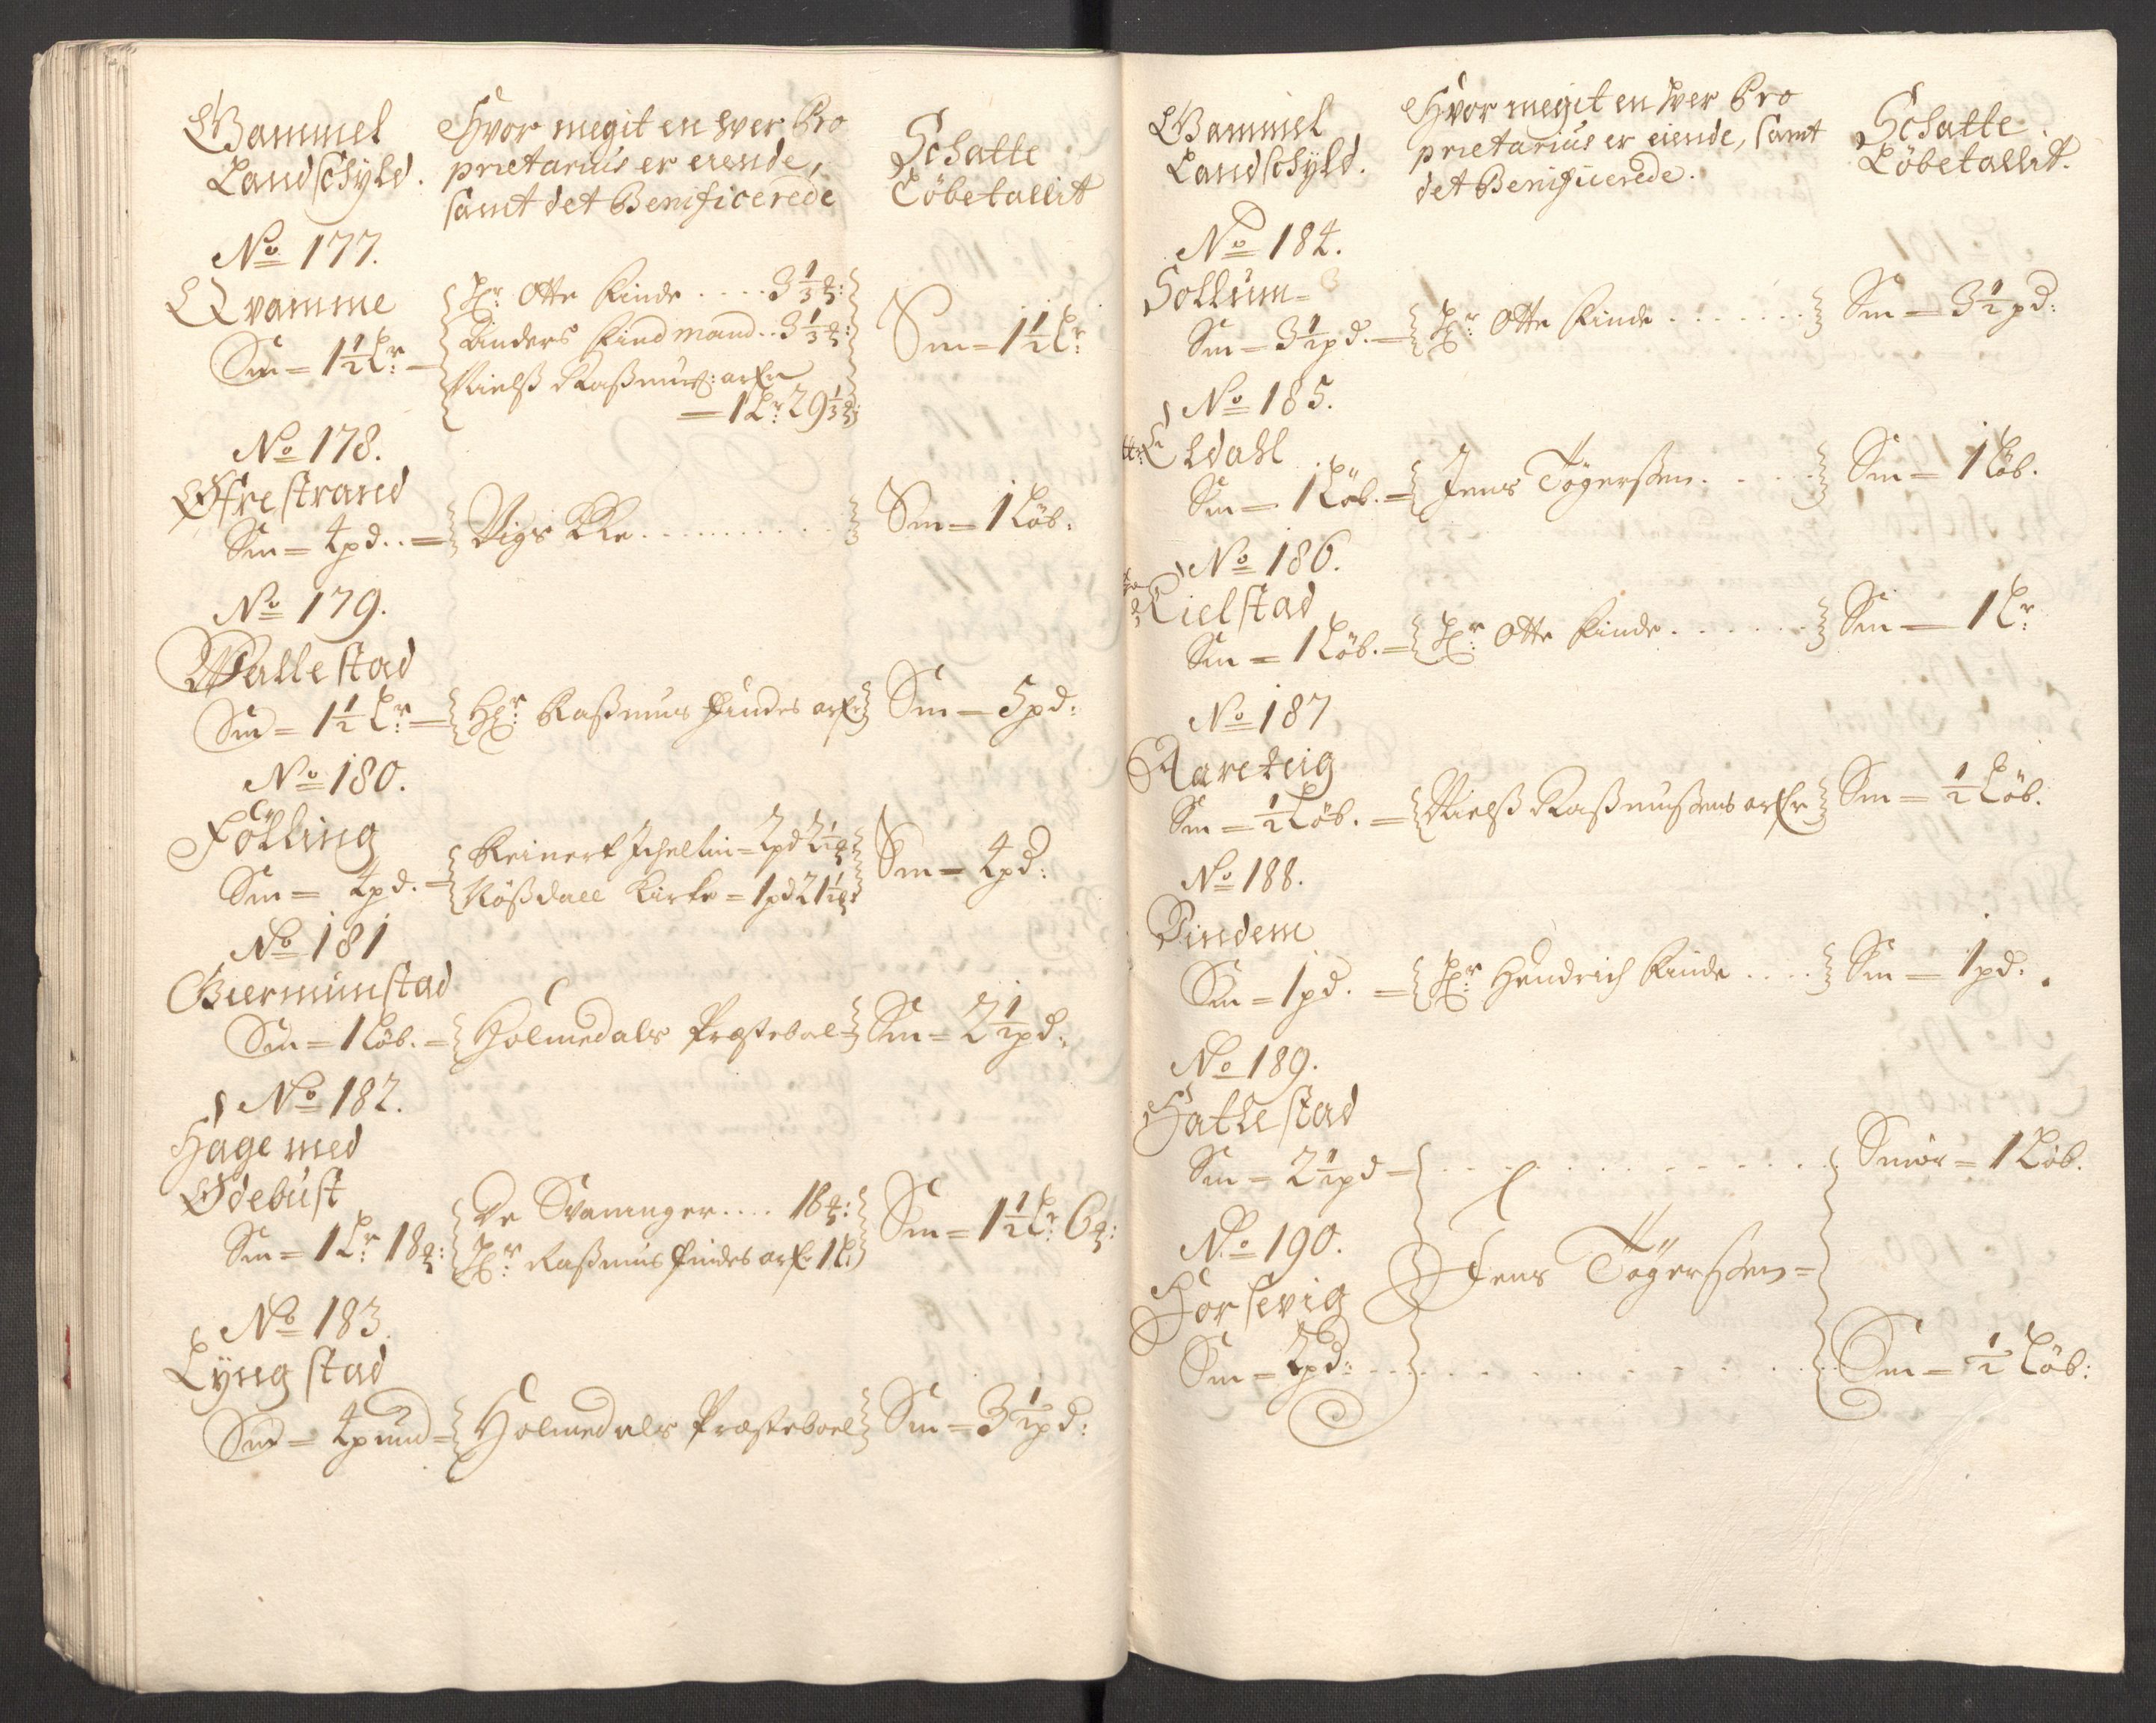 Gammel
Landschyld.
Hvor megit en hver Pro
prietarius er eiende,
samt det Benificerede
Schatte
Löbetallit
No 177.
Qvamme
Sm = 1½ Lr: =
Hr: Otte Finde .... 3⅓ ꝥ:
Anders Findmand .. 3⅓ ꝥ:
Nielß Raßmuß: arfr
= 1 Lr: 29⅓ ꝥ:
Sm = 1½ Lr:
No 178.
Øfrestrand
Sm = 4 pd.. =
Vigs Kke ..........
Sm = 1 Löb:
No 179.
Wallestad
Sm = 1½ Lr: =
Hr: Raßmus Findes arfr
Sm = 5 pd:
No 180.
Fölling
Sm = 4 pd. =
Reinert = 2 pd 2½ ꝥ
Nößdall Kirke = 1 pd 21½ ꝥ
Sm = 4 pd:
No 181
Giermunstad
Sm = 1 Löb. =
Holmedals Præstebol
Sm = 2½ pd:
No 182.
Hage med
Ødebust
Sm = 1 Lr: 18 ꝥ:
De Svaninger .... 18 ꝥ:
Hr: Raßmus Findes arfr 1 L:
Sm = 1½ Lr: 6 ꝥ:
No 183.
Lÿngstad
Sm = 4 pund =
Holmedals Præsteboel
Sm = 3½ pd:
Gammel
Landschyld.
Hvor megit en hver Pro
prietarius er eiende, samt
det Benificerede.
Schatte
Löbetallit.
No 184.
Sollum =
Sm = 3½ pd. =
Hr: Otte Finde .......
Sm = 3½ pd:
No 185.
Eldahl
Sm = 1 Löb. =
Jens Tögerssen .....
Sm = 1 Löb.
No 186.
Kielstad
Sm = 1 Löb. =
Hr: Otte Finde .......
Sm = 1 Lr
No 187
Aareteig
Sm = ½ Löb. =
Nielß Raßmußens arfr
Sm = ½ Löb.
No 188.
Dindem
Sm = 1 pd. =
Hr: Hendrich Finde ....
Sm = 1 pd:.
No 189.
Hatlestad
Sm = 2½ pd =
Smör = 1 Löb.
No 190.
Jens Tögerssen =
Horsevig
Sm = 2 pd:
Sm = ½ Löb: